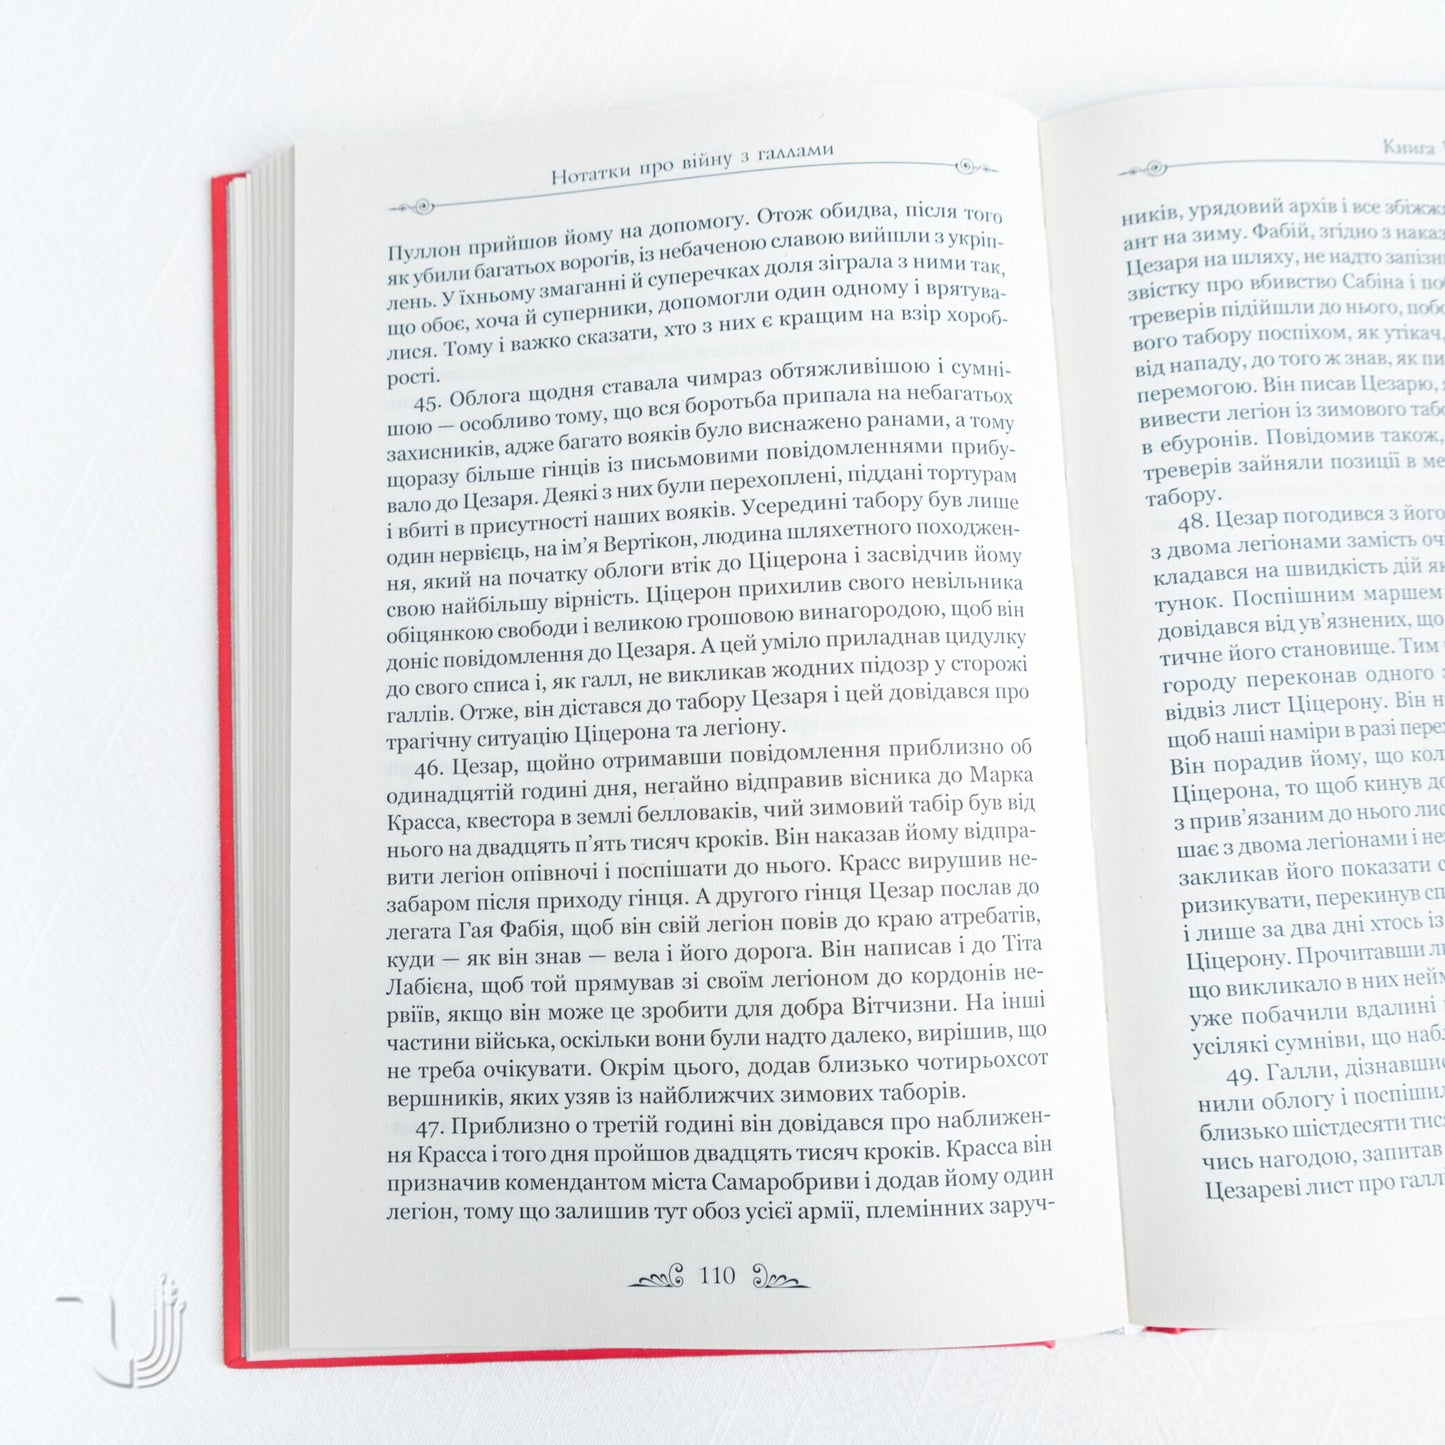 Нотатки про війну з галлами
Пуллон прийшов йому на допомогу. Отож обидва, після того
як убили багатьох ворогів, із небаченою славою вийшли з укріп-
лень. У їхньому змаганні й суперечках доля зіграла з ними так,
що обоє, хоча й суперники, допомогли один одному і врятува-
лися. Тому і важко сказати, хто з них є кращим на взір хороб-
рості.
45. Облога щодня ставала чимраз обтяжливішою і сумні-
шою — особливо тому, що вся боротьба припала на небагатьох
захисників, адже багато вояків було виснажено ранами, а тому
щоразу більше гінців із письмовими повідомленнями прибу-
вало до Цезаря. Деякі з них були перехоплені, піддані тортурам
і вбиті в присутності наших вояків. Усередині табору був лише
один нервієць, на ім’я Вертікон, людина шляхетного походжен-
ня, який на початку облоги втік до Ціцерона і засвідчив йому
свою найбільшу вірність. Ціцерон прихилив свого невільника
обіцянкою свободи і великою грошовою винагородою, щоб він
доніс повідомлення до Цезаря. А цей уміло приладнав цидулку
до свого списа і, як галл, не викликав жодних підозр у сторожі
галлів. Отже, він дістався до табору Цезаря і цей довідався про
трагічну ситуацію Ціцерона та легіону.
46. Цезар, щойно отримавши повідомлення приблизно об
одинадцятій годині дня, негайно відправив вісника до Марка
Красса, квестора в землі белловаків, чий зимовий табір був від
нього на двадцять п’ять тисяч кроків. Він наказав йому відпра-
вити легіон опівночі і поспішати до нього. Красс вирушив не-
забаром після приходу гінця. А другого гінця Цезар послав до
легата Гая Фабія, щоб він свій легіон повів до краю атребатів,
куди — як він знав — вела і його дорога. Він написав і до Тіта
Лабієна, щоб той прямував зі своїм легіоном до кордонів не-
рвіїв, якщо він може це зробити для добра Вітчизни. На інші
частини війська, оскільки вони були надто далеко, вирішив, що
не треба очікувати. Окрім цього, додав близько чотирьохсот
вершників, яких узяв із найближчих зимових таборів.
47. Приблизно о третій годині він довідався про наближен-
ня Красса і того дня пройшов двадцять тисяч кроків. Красса він
призначив комендантом міста Самаробриви і додав йому один
легіон, тому що залишив тут обоз усієї армії, племінних заруч-
110
Книга
ників, урядовий архів і все збіжжя
ант на зиму. Фабій, згідно з наказ
Цезаря на шляху, не надто запізни
звістку про вбивство Сабіна і
треверів підійшли до нього,
вого табору поспіхом, як утікач,
від нападу, до того ж знав, як
перемогою. Він писав Цезарю,
вивести легіон із зимового
в ебуронів. Повідомив також,
треверів зайняли позиції в
табору.
48. Цезар погодився з його
з двома легіонами замість
кладався на швидкість дій
тунок. Поспішним маршем
довідався від ув’язнених, що
тичне його становище. Тим
городу переконав одного
відвіз лист Ціцерону. Він
щоб наші наміри в разі
Він порадив йому, що
Ціцерона, то щоб кинув
з прив’язаним до нього
шає з двома легіонами і
закликав його показати
ризикувати, перекинув
і лише за два дні хтось із
Ціцерону. Прочитавши
що викликало в них
уже побачили вдалині
усілякі сумніви, що
49. Галли, дізнавши
нили облогу і
близько шістдесяти
чись нагодою, запитав
Цезареві лист про